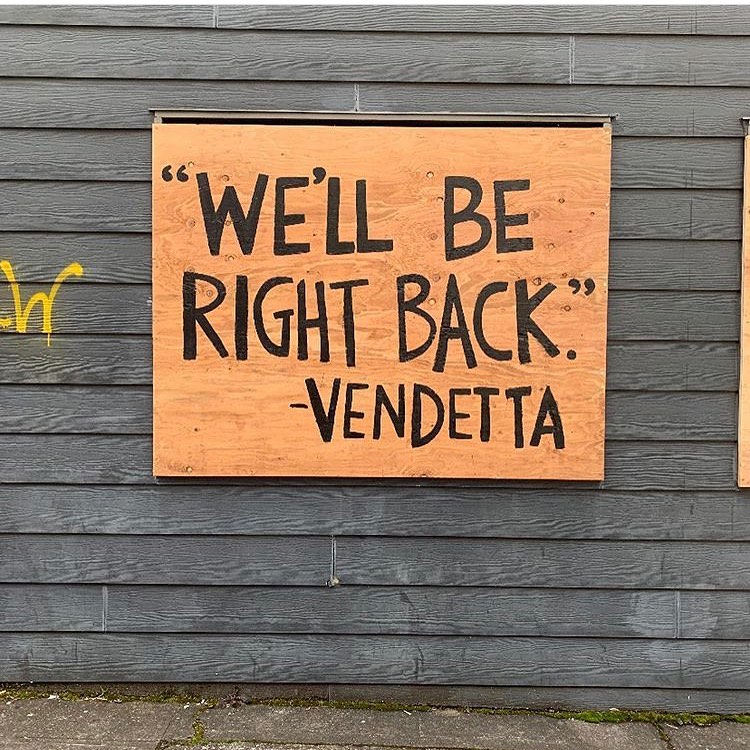 “WE’LL BE
RIGHT BACK.”
-VENDETTA